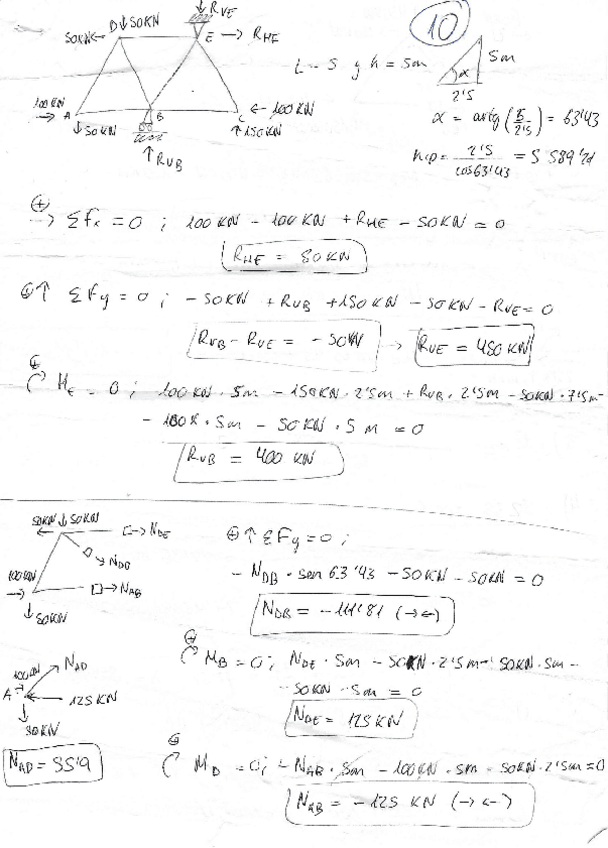 10
D ↓50KN
50KN←
↓ RVE
E → RHE
L = 5 y h = 5m
5m
α
2'5
100KN →
A
↓50KN
B
C
← 100KN
↑150KN
↑ RVB
α = artg (5/2'5) = 63'43
hip = 2'5 / cos63'43 = 5'589
⊕→ ΣFx = 0 ; 100KN - 100KN + RHE - 50KN = 0
RHE = 50KN
⊕↑ ΣFy = 0 ; - 50KN + RVB + 150KN - 50KN - RVE = 0
RVB - RVE = - 50KN → RVE = 450KN
⊕ ME = 0 ; 100KN · 5m - 150KN · 2'5m + RVB · 2'5m - 50KN · 7'5m -
- 100K · 5m - 50KN · 5m = 0
RVB = 400 KN
50KN ↓ 50KN
→ NDE
→ NDB
100KN →
→ NAB
↓ 50KN
⊕↑ ΣFy = 0 ;
- NDB · sen 63'43 - 50KN - 50KN = 0
NDB = - 111'81 (→←)
⊕ MB = 0 ; NDE · 5m - 50KN · 2'5m - 50KN · 5m -
- 50KN · 5m = 0
NDE = 125 KN
100KN
NAD
A
← 125 KN
↓
50KN
NAD = 55'9
⊕ MD = 0 ; - NAB · 5m - 100KN · 5m - 50KN · 2'5m = 0
NAB = - 125 KN (→←)